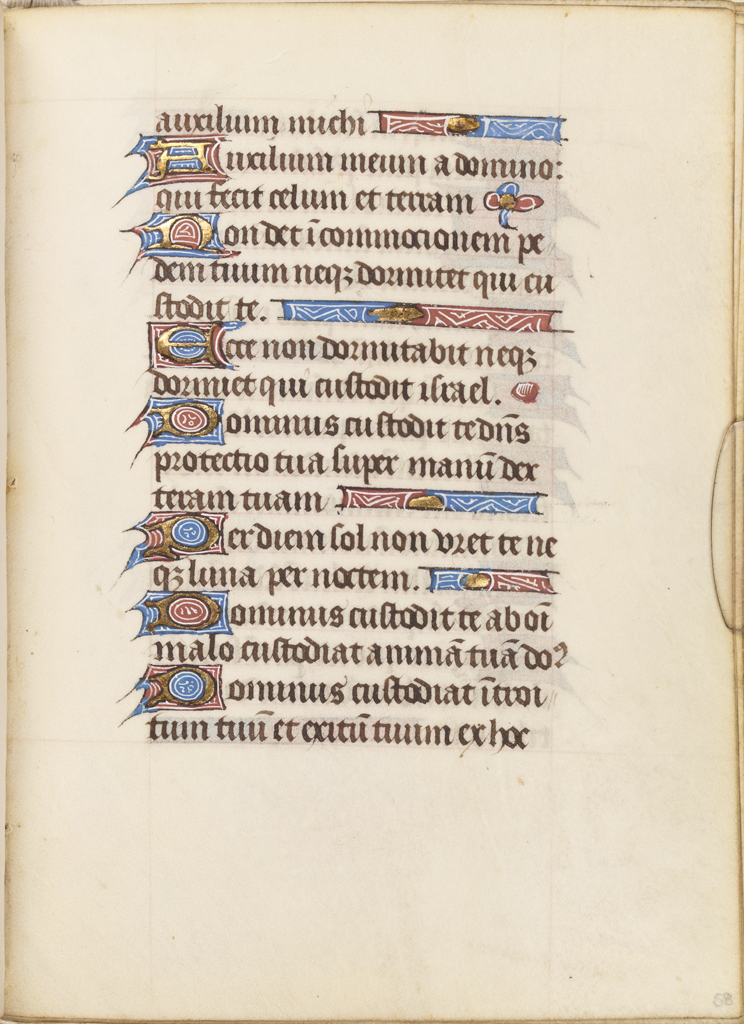 auxilium michi
Auxilium meum a domino:
qui fecit celum et terram
Non det ī commocionem pe
dem tuum neqꝫ dormitet qui cu
stodit te.
Ecce non dormitabit neqꝫ
dormiet qui custodit israel.
Dominus custodit te dn̄s
protectio tua super manū dex
teram tuam
Per diem sol non vret te ne
qꝫ luna per noctem.
Dominus custodit te ab oī
malo custodiat animā tuā do
Dominus custodiat ītroi
tum tuū et exitū tuum ex hoc
58